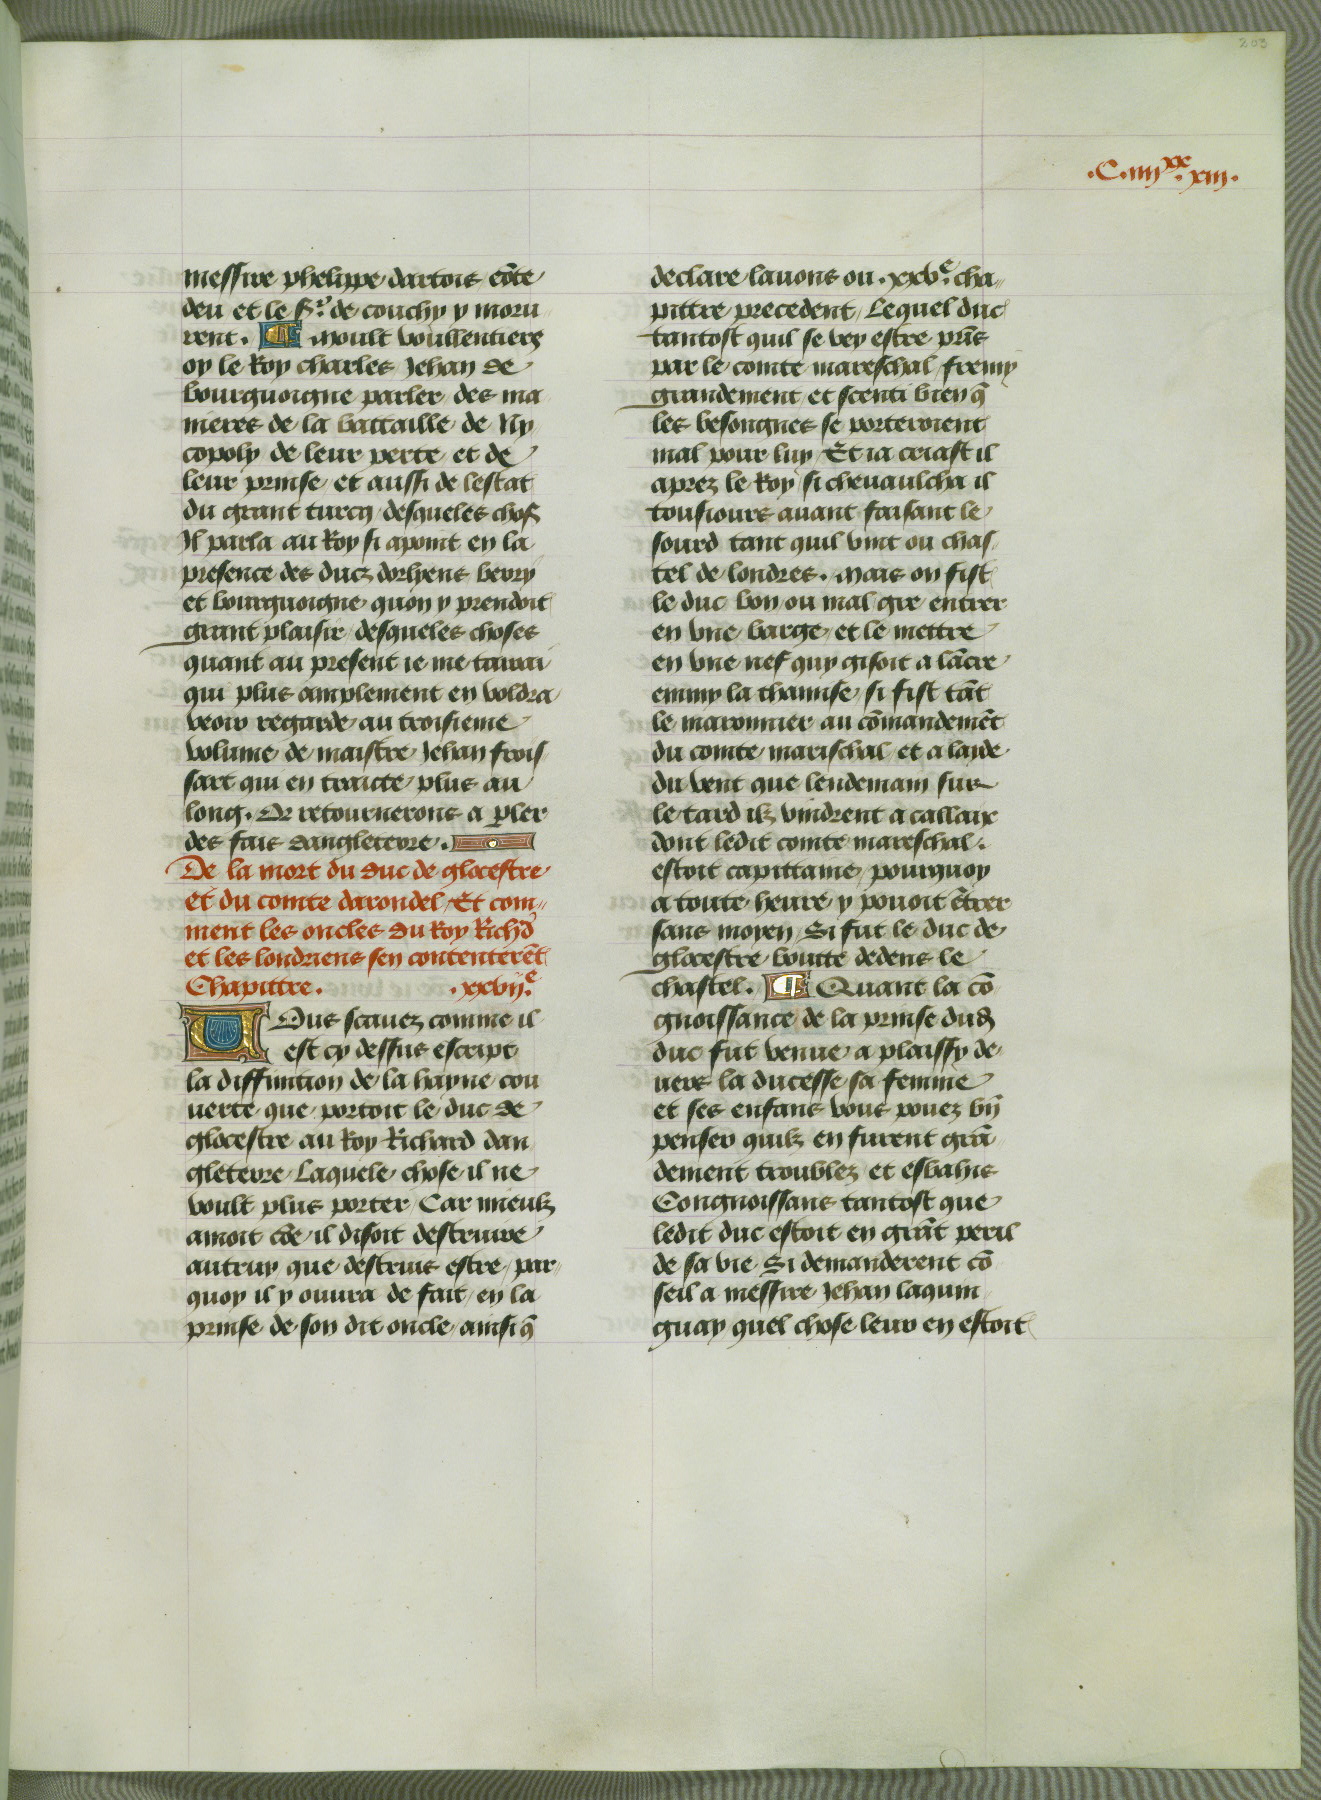 203
.C.iiij.xx xiii.
messire phelippe dartois cõte
deu et le sr. de couchy y moru
rent. Moult voullentiers
oy le Roy charles Jehan de
bourguoigne parler des ma
nieres de la battaille de Ny
copoly de leur perte et de
leur prinse et aussi de lestat
du grant turcq desqueles chos
Il parla au Roy si apoint en la
presence des ducz dorlyens berry
et bourguoigne quon y prendoit
grant plaisir desqueles choses
quant au present ie me tairai
qui plus amplement en voldra
veoir regarde au troisieme
volume de maistre Jehan frois
sart qui en traicte plus au
long. Or retournerons a pler
des fais dangleterre.
De la mort du duc de glocestre
et du comte darondel Et com-
ment les oncles du Roy Richd
et les londriens sen contenterẽt
Chapittre. .xxvije
Vous scauez comme il
est cy dessus escript
la diffinition de la hayne cou
uerte que portoit le duc de
glocestre au Roy Richard dan
gleterre Laquele chose il ne
voult plus porter Car mieulz
amoit cõe il disoit destruire
autruy que destruis estre par-
quoy il y ouura de fait en la
prinse de son dit oncle ainsi q̃
declare lauons ou .xxve. cha-
pittre precedent Lequel duc
tantost quil se vey estre prĩs
par le comte mareschal fremy
grandement et scenti bien q̃
les besongnes se porteroient
mal pour luy Et ia criast il
aprez le Roy si cheuaulcha il
tousiours auant faisant le
sourd tant quil vint ou chas
tel de londres. Mais on fist
le duc bon ou mal gre entrer
en vne barge et le mettre
en vne nef quy gisoit a lãcre
emmy la thamise si fist tãt
le maronnier au cõmandemẽt
du comte marischal et a layde
du vent que lendemain sur
le tard ilz vindrent a caillaix
dont ledit comte mareschal.
estoit capittaine pourquoy
a toute heure y pouoit ẽtrer
sans moyen Si fut le duc de
glocestre boutte dedens le
chastel. Quant la cõ
gnoissance de la prinse dud
duc fut venue a plaissy de
uers la ducesse sa femme
et ses enfans vous pouez bñ
penser quilz en furent grã
dement troublez et esbahis
Congnoissans tantost que
ledit duc estoit en grãt peril
de sa vie Si demanderent cõ
seil a messire Jehan laquin
guay quel chose leur en estoit